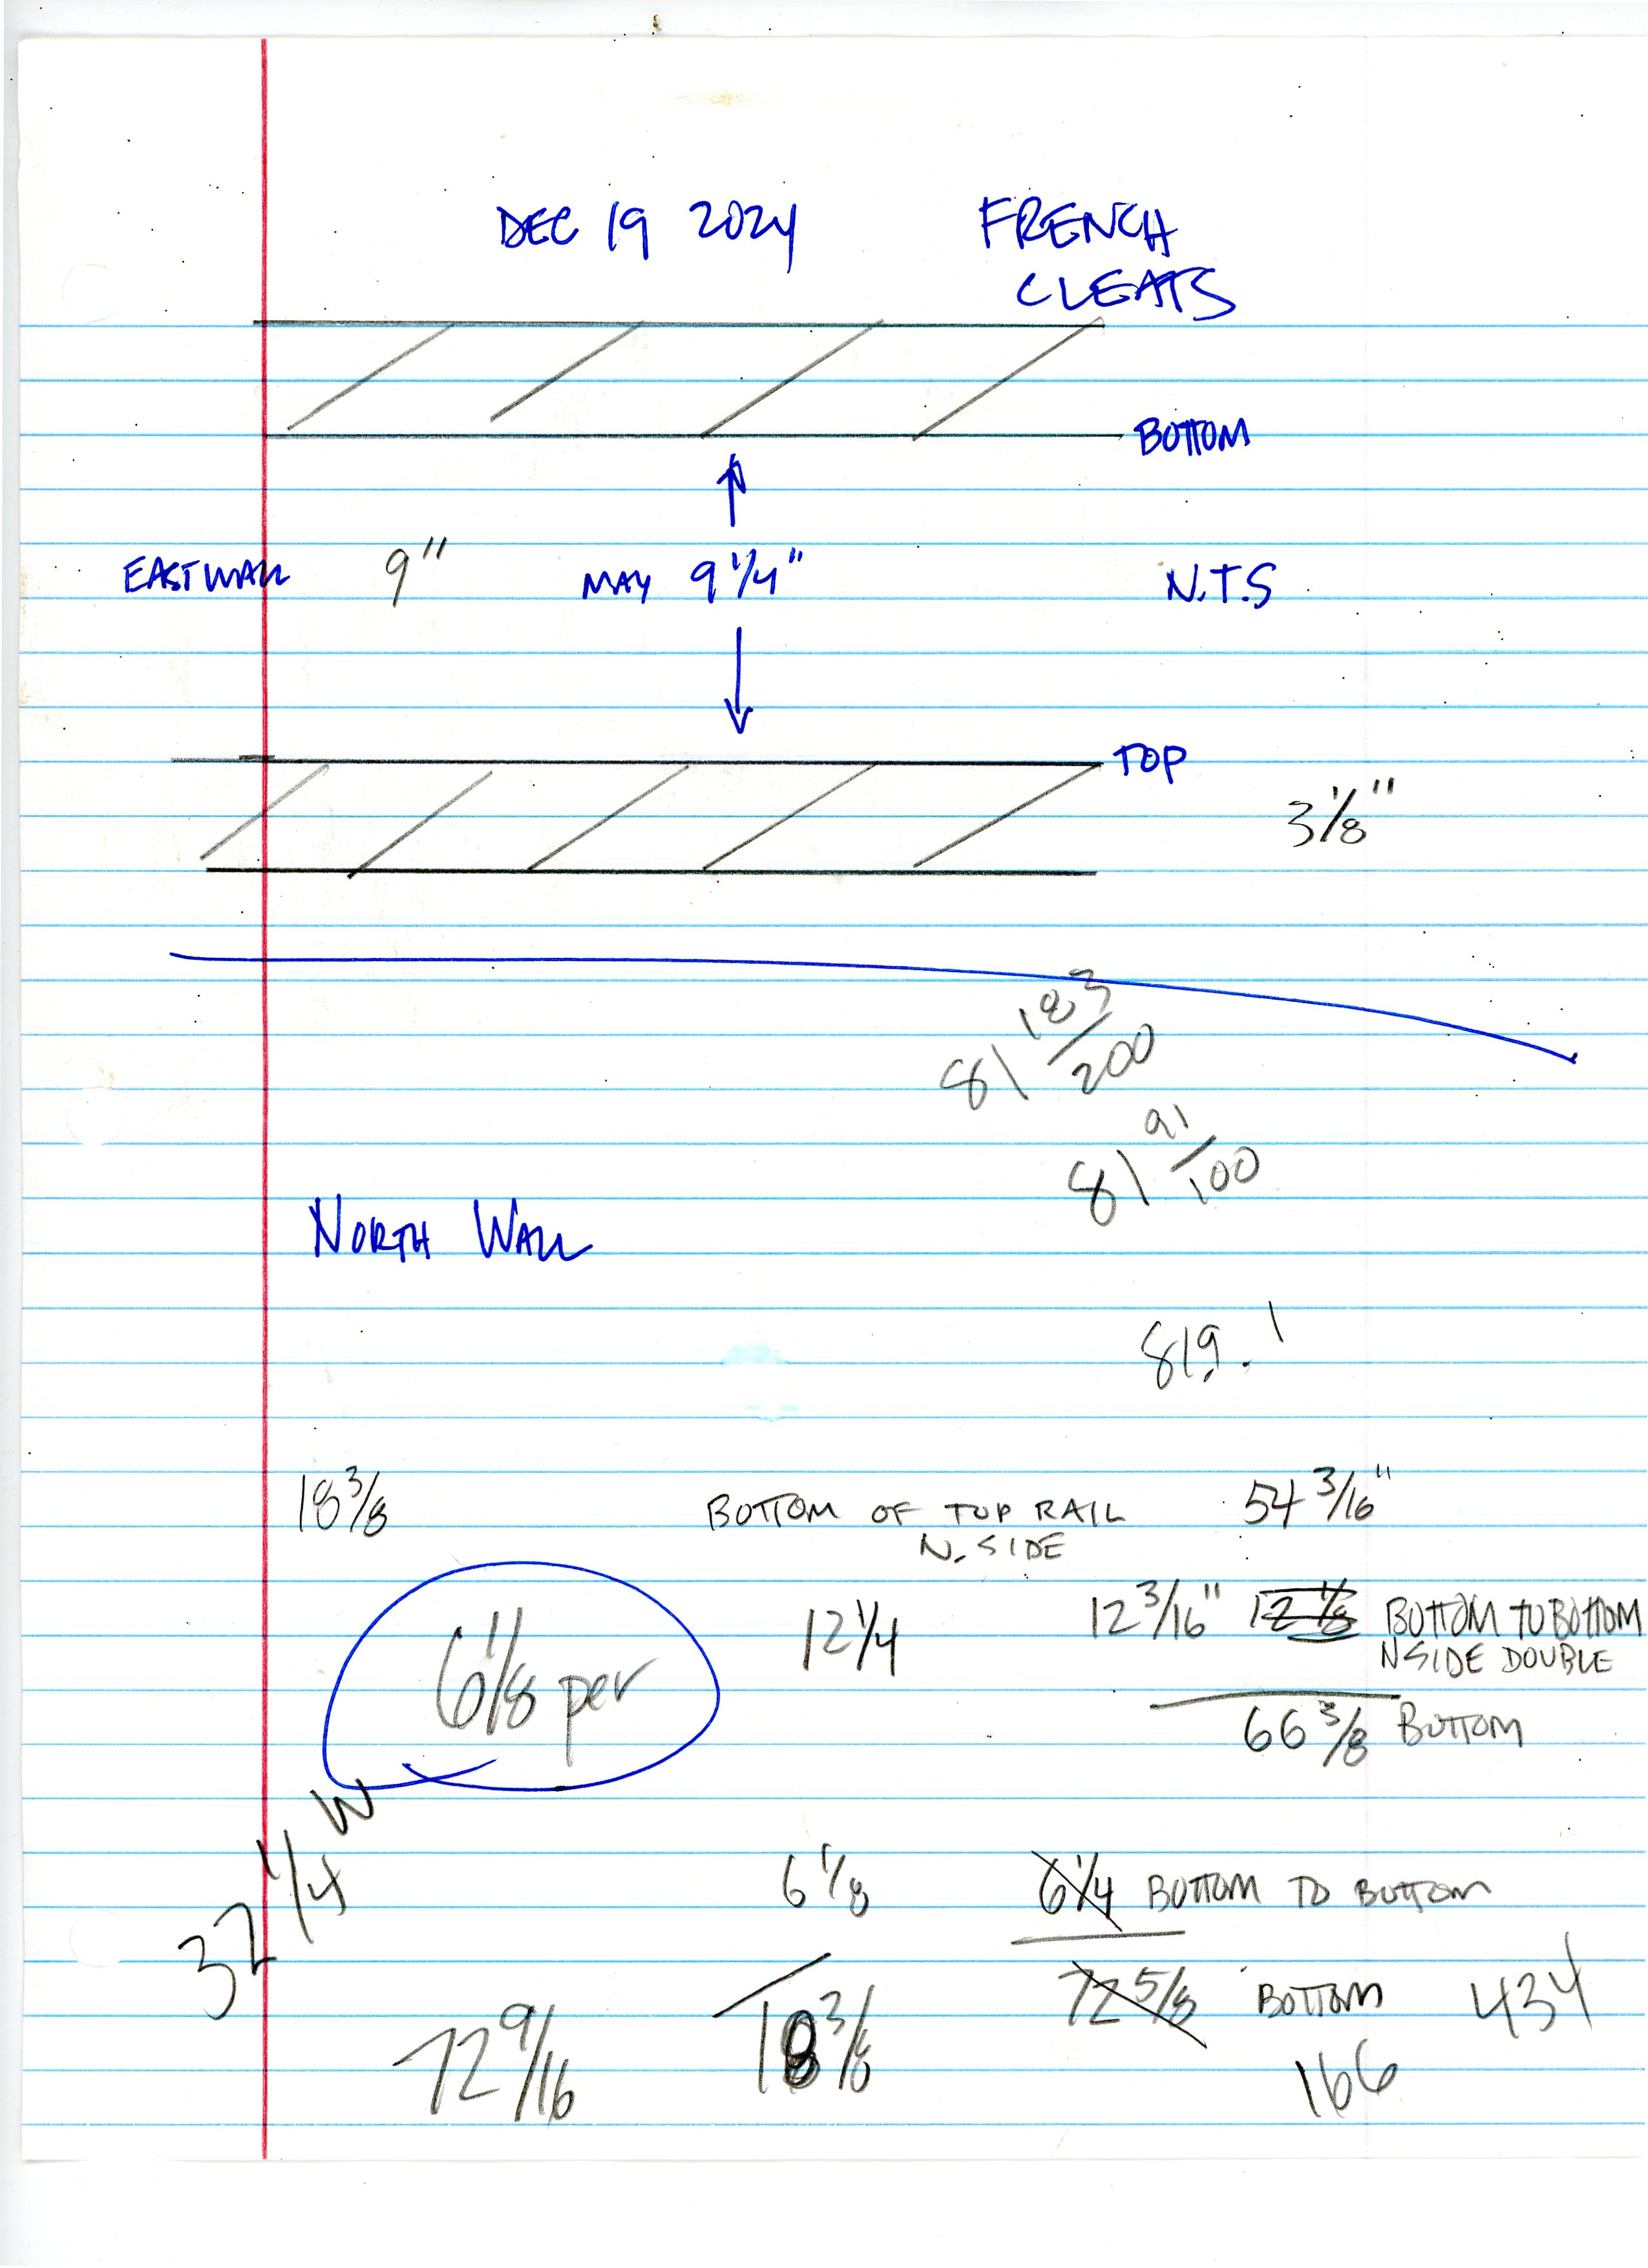 DEC 19 2024 FRENCH
CLEATS
BOTTOM
EAST WALL 9" MAY 9 1/4" N.T.S
TOP
3 1/8"
81 183/200
81 91/100
NORTH WALL
819.1
18 3/8 BOTTOM OF TOP RAIL 54 3/16"
N. SIDE
6 1/8 per 12 1/4 12 3/16" 12 1/8 BOTTOM TO BOTTOM
N SIDE DOUBLE
66 3/8 BOTTOM
32 1/4 W
6 1/8 6 1/4 BOTTOM TO BOTTOM
72 9/16 18 3/8 72 5/8 BOTTOM 434
166